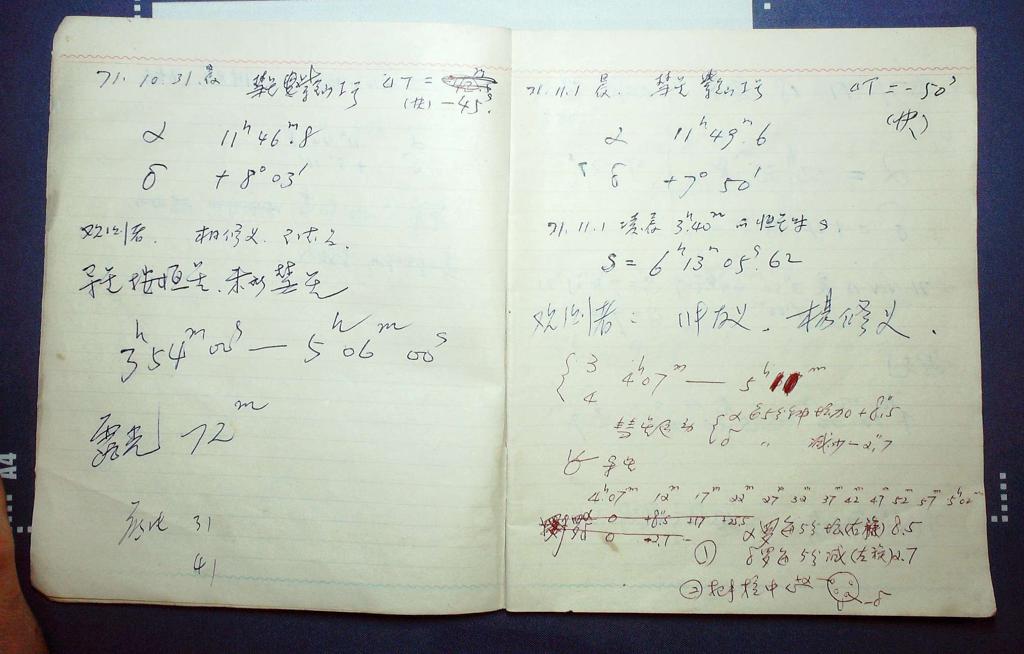 71. 10. 31. 晨 彗星 紫金山一号 ΔT =
(快) -45ˢ.
α 11ʰ 46ᵐ.8
δ + 8° 03′
观测者. 杨修义.
导星按恒星. 未此彗星
3ʰ 54ᵐ 00ˢ — 5ʰ 06ᵐ 00ˢ
露光 72ᵐ
底片 31
41
71.11.1 晨. 彗星 紫金山一号 ΔT = -50ˢ
(快)
α 11ʰ 49ᵐ.6
δ +7° 50′
71.11.1 凌晨 3ʰ.40ᵐ 的恒星时 S
S = 6ʰ 13ᵐ 05ˢ.62
观测者: 帅友义. 楊修义.
3 4ʰ 07ᵐ — 5ʰ
4
彗星运动 α 每5分钟增加 +8".5
δ 〃 减少 -2".7
4ʰ07ᵐ 12ᵐ 17ᵐ 22ᵐ 27ᵐ 32ᵐ 37ᵐ 42ᵐ 47ᵐ 52ᵐ 57ᵐ 5ʰ02ᵐ
α 0 +8".5 +17 +25.5
δ 0 -2.7 -
① α 每5分增(右旋) 8.5
δ 每5分减(左旋) 2.7
② α -δ